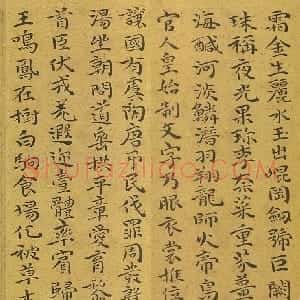 霜金生麗水玉出崐岡劔號巨闕
珠稱夜光果珍李柰菜重芥薑
海醎河淡鱗潛羽翔龍師火帝鳥
官人皇始制文字乃服衣裳推位
讓國有虞陶唐吊民伐罪周發殷
湯坐朝問道垂拱平章愛育黎
首臣伏戎羌遐迩壹體率賓歸
王鳴鳳在樹白駒食場化被草木